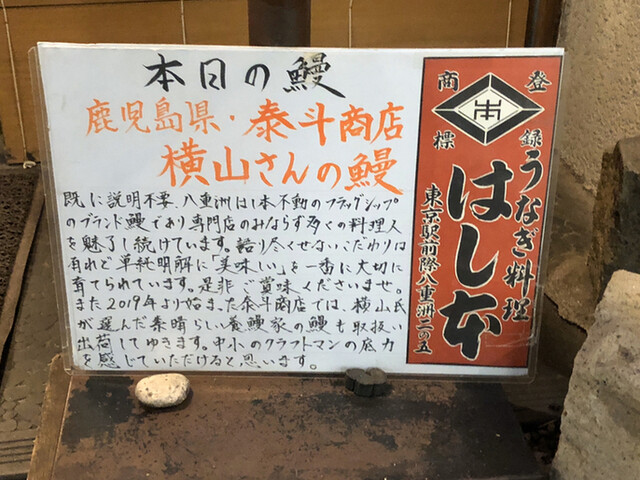 本日の鰻
鹿児島県・泰斗商店
横山さんの鰻
既に説明不要、八重洲は1本不動のフラッグシップ
のブランド鰻であり専門店のみならず多くの料理人
を魅了し続けています。語り尽くせないこだわりは
有れど単純明解に「美味しい」を一番に大切に
育てられています。是非ご賞味くださいませ。
また2019年より始まった泰斗商店では、横山氏
が選んだ素晴らしい養鰻家の鰻も取扱い
出荷してゆきます。中小のクラフトマンの底力
を感じていただけると思います。
登録
商標
本
うなぎ料理
はし本
東京駅前際八重洲二の五